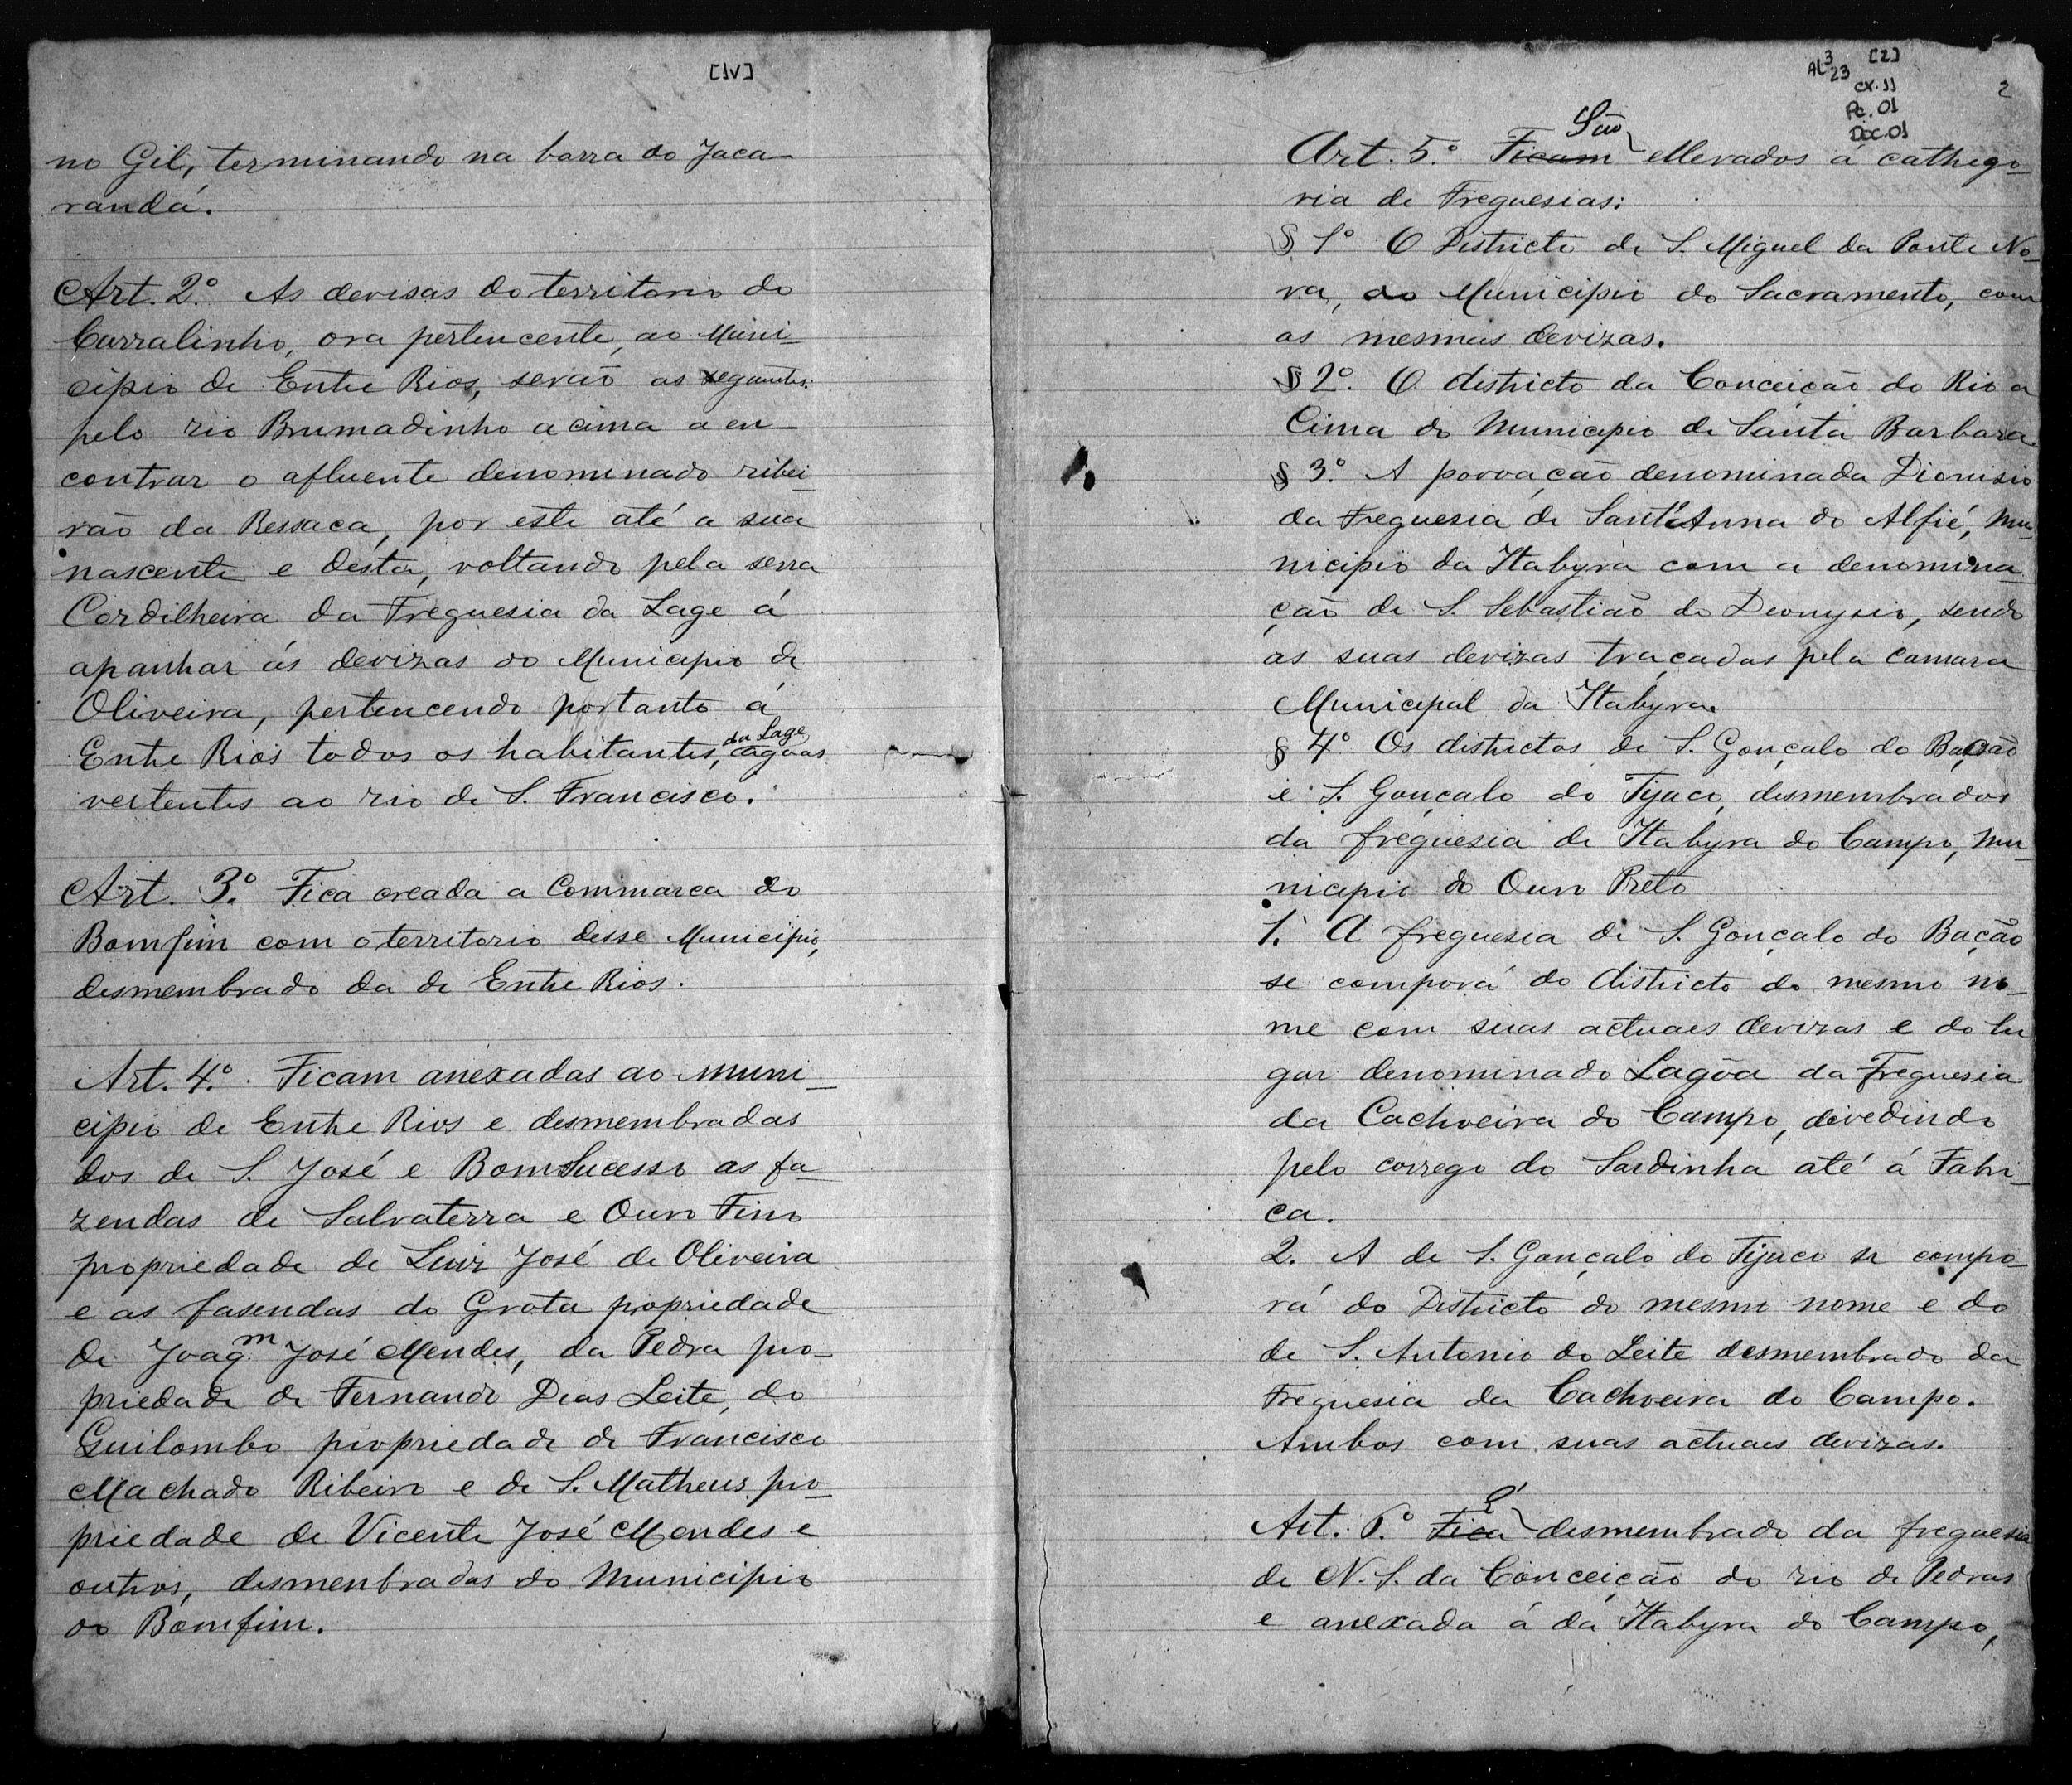 [1V]
no Gil, terminando na barra do Jaca-
randá.
Art. 2.º As devisas do territorio do
Curralinho, ora pertencente, ao Muni-
cipio de Entre Rios, serão as seguintes:
pelo rio Brumadinho acima a en-
contrar o afluente denominado ribei-
rão da Bessaca, por este até a sua
nascente e desta, voltando pela serra
Cordilheira da Freguesia da Lage á
apanhar ás devizas do Municipio de
Oliveira, pertencendo portanto á
Entre Rios todos os habitantes, da Lage agoas
vertentes ao rio de S. Francisco.
Art. 3.º Fica creada a Commarca do
Bomfim com o territorio desse Municipio,
desmembrado da de Entre Rios.
Art. 4.º Ficam anexadas ao Muni-
cipio de Entre Rios e desmembradas
dos de S. José e Bom Sucesso as fa-
zendas de Salvaterra e Ouro Fino
propriedade de Luiz José de Oliveira
e as fasendas do Grota propriedade
de Joaq.m José Mendes, da Pedra pro-
priedade de Fernando Dias Leite, do
Quilombo propriedade de Francisco
Machado Ribeiro e de S. Matheus pro-
priedade de Vicente José Mendes e
outros, desmenbradas do Municipio
do Bomfim.
[2]
Al3 23
cx. 11
Pc. 01
Doc. 01
2
Art. 5.º Ficam São ellevados a cathego-
ria de Freguesias:
§ 1º O Districto de S. Miguel da Ponte No-
va, do Municipio do Sacramento, com
as mesmas devizas.
§ 2º. O districto da Conceição do Rio a
Cima do Municipio de Santa Barbara.
§ 3º. A povoação denominada Dionisio
da Freguesia de Sant'Anna do Alfié, Mu-
nicipio da Itabyra com a denomina-
ção de S. Sebastião do Dionysio, sendo
as suas devizas traçadas pela camara
Municipal da Itabyra.
§ 4º Os districtos de S. Gonçalo do Bação
e S. Gonçalo do Tijuco, desmembrados
da freguesia de Itabyra do Campo, Mu-
nicipio de Ouro Preto
1. A freguesia de S. Gonçalo do Bação
se comporá do districto do mesmo no-
me com suas actuaes devizas e do lu
gar denominado Lagôa da Freguesia
da Cachoeira do Campo, devedindo
pelo corrego do Sardinha até á Fabri-
ca.
2. A de S. Gonçalo do Tijuco se compo-
rá do Districto do mesmo nome e do
de S. Antonio do Leite desmembrado da
Freguesia da Cachoeira do Campo.
Ambos com suas actuaes devizas.
Art. 6.º Fica É desmembrado da freguesia
de N. S. da Conceição do rio de Pedras
e anexada á da Itabyra do Campo,